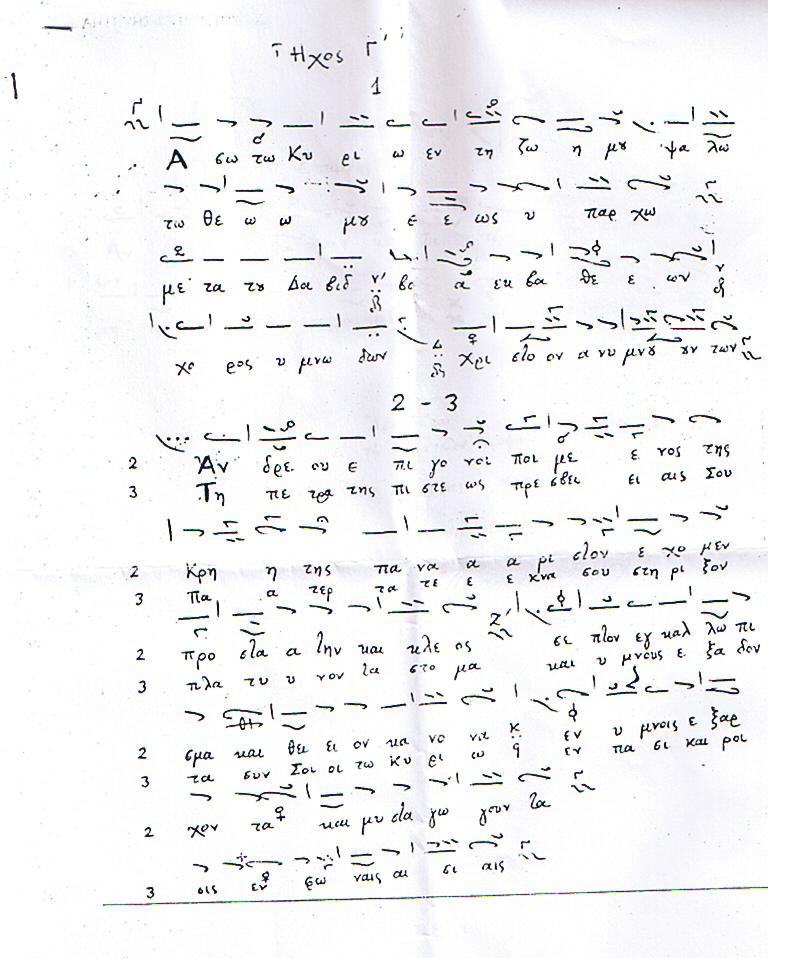 Ἦχος Γ΄
1
Α σω τω Κυ ρι ω εν τη ζω η μȣ ψα λω
τω θε ω ω μȣ ε ε ως υ παρ χω
με τα τȣ Δα βιδ βο α εκ βα θε ε ων
χο ρος υ μνω δων Χρι στο ον α νυ μνȣ ȣν των
2 - 3
2 Ἀν δρε ου ε πι γο νοι ποι με ε νος της
3 Τη πε τρα της πι στε ως πρε σβει ει αις Σου
2 Κρη η της πα να α α ρι στον ε χο μεν
3 Πα α τερ τα τε ε ε κνα σου στη ρι ξον
2 προ στα α την και κλε ος σε πτον εγ καλ λω πι
3 πλα τυ υ νον τα στο μα και υ μνους ε ξα δον
2 σμα και θει ει ον κα νο να εν υ μνοις ε ξαρ
3 τα συν Σοι οι τω Κυ ρι ω εν πα σι και ροι
2 χον τα και μυ στα γω γουν τα
3 οις εν φω ναις αι σι αις